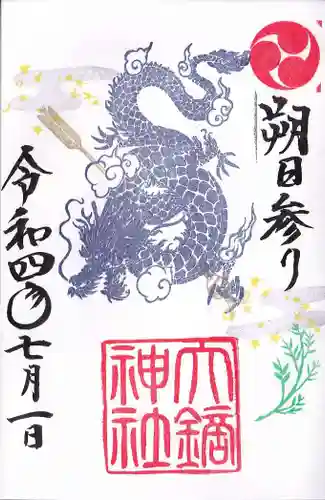 朔日参り
大鏑神社
令和四年七月一日